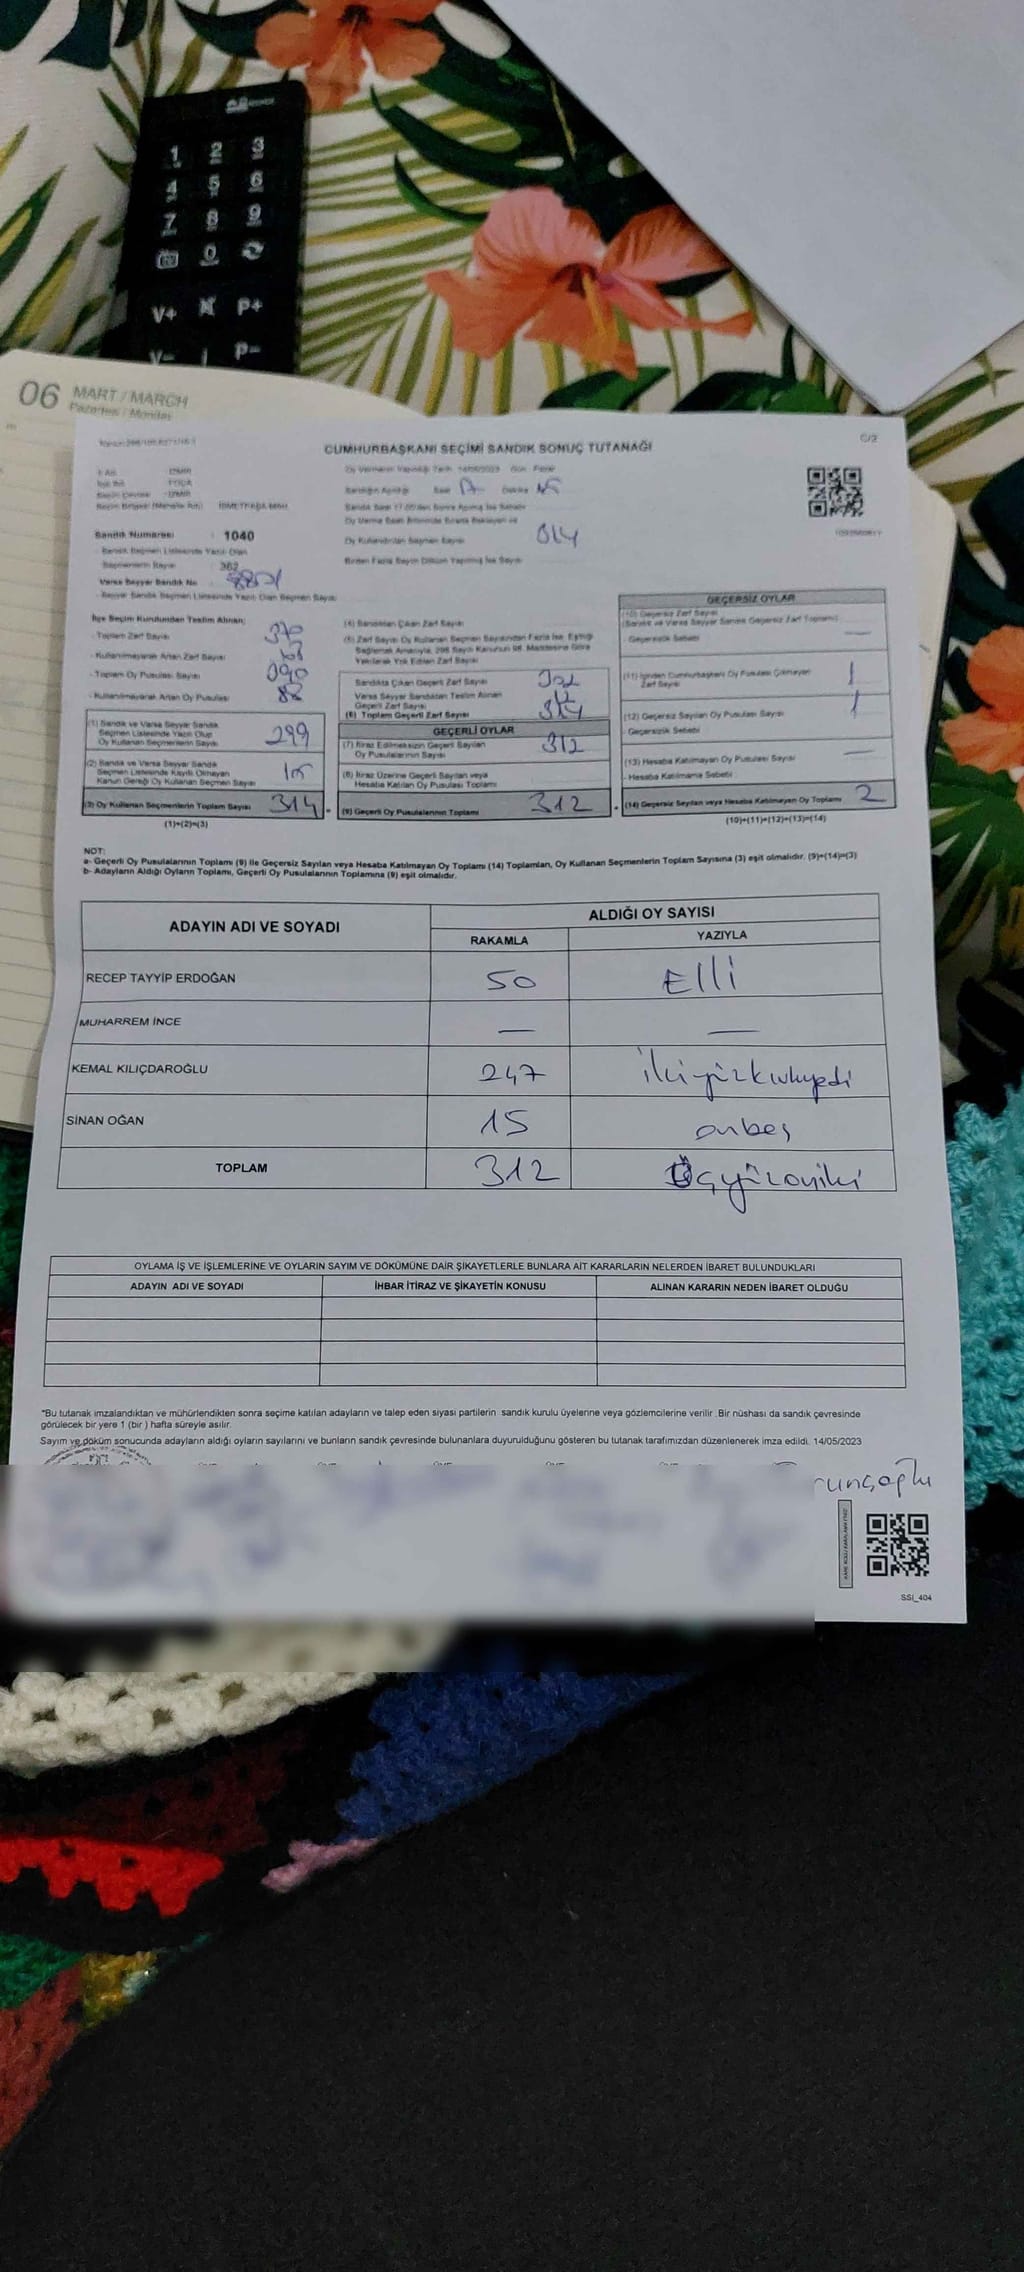 1 2 3
4 5 6
7 8 9
0
V+ P+
V- P-
06 MART / MARCH
Pazartesi / Monday
C/2
CUMHURBAŞKANI SEÇİMİ SANDIK SONUÇ TUTANAĞI
Sandık Numarası : 1040
- Sandık Seçmen Listesinde Yazılı Olan
Seçmenlerin Sayısı : 362
Varsa Seyyar Sandık No
- Seyyar Sandık Seçmen Listesinde Yazılı Olan Seçmen Sayısı
Oy Kullandırılan Seçmen Sayısı 314
İlçe Seçim Kurulundan Teslim Alınan;
- Toplam Zarf Sayısı 370
- Kullanılmayarak Artan Zarf Sayısı
- Toplam Oy Pusulası Sayısı
- Kullanılmayarak Artan Oy Pusulası 88
(1) Sandık ve Varsa Seyyar Sandık
Seçmen Listesinde Yazılı Olup
Oy Kullanan Seçmenlerin Sayısı 299
(2) Sandık ve Varsa Seyyar Sandık
Seçmen Listesinde Kayıtlı Olmayan
Kanun Gereği Oy Kullanan Seçmen Sayısı 15
(3) Oy Kullanan Seçmenlerin Toplam Sayısı 314
(1)+(2)=(3)
(4) Sandıktan Çıkan Zarf Sayısı
(5) Zarf Sayısı Oy Kullanan Seçmen Sayısından Fazla İse, Eşitliği
Sağlamak Amacıyla, 298 Sayılı Kanunun 98. Maddesine Göre
Yakılarak Yok Edilen Zarf Sayısı
Sandıkta Çıkan Geçerli Zarf Sayısı
Varsa Seyyar Sandıktan Teslim Alınan
Geçerli Zarf Sayısı
(6) Toplam Geçerli Zarf Sayısı 314
GEÇERLİ OYLAR
(7) İtiraz Edilmeksizin Geçerli Sayılan
Oy Pusulalarının Sayısı 312
(8) İtiraz Üzerine Geçerli Sayılan veya
Hesaba Katılan Oy Pusulası Toplamı
(9) Geçerli Oy Pusulalarının Toplamı 312
GEÇERSİZ OYLAR
(10) Geçersiz Zarf Sayısı
(Sandık ve Varsa Seyyar Sandık Geçersiz Zarf Toplamı)
- Geçersizlik Sebebi —
(11) İçinden Cumhurbaşkanı Oy Pusulası Çıkmayan
Zarf Sayısı 1
(12) Geçersiz Sayılan Oy Pusulası Sayısı 1
- Geçersizlik Sebebi
(13) Hesaba Katılmayan Oy Pusulası Sayısı —
- Hesaba Katılmama Sebebi
(14) Geçersiz Sayılan veya Hesaba Katılmayan Oy Toplamı 2
(10)+(11)+(12)+(13)=(14)
NOT:
a- Geçerli Oy Pusulalarının Toplamı (9) ile Geçersiz Sayılan veya Hesaba Katılmayan Oy Toplamı (14) Toplamları, Oy Kullanan Seçmenlerin Toplam Sayısına (3) eşit olmalıdır. (9)+(14)=(3)
b- Adayların Aldığı Oyların Toplamı, Geçerli Oy Pusulalarının Toplamına (9) eşit olmalıdır.
ADAYIN ADI VE SOYADI ALDIĞI OY SAYISI
RAKAMLA YAZIYLA
RECEP TAYYİP ERDOĞAN 50 Elli
MUHARREM İNCE — —
KEMAL KILIÇDAROĞLU 247 ikiyüzkırkyedi
SİNAN OĞAN 15 onbeş
TOPLAM 312 Üçyüzoniki
OYLAMA İŞ VE İŞLEMLERİNE VE OYLARIN SAYIM VE DÖKÜMÜNE DAİR ŞİKAYETLERLE BUNLARA AİT KARARLARIN NELERDEN İBARET BULUNDUKLARI
ADAYIN ADI VE SOYADI İHBAR İTİRAZ VE ŞİKAYETİN KONUSU ALINAN KARARIN NEDEN İBARET OLDUĞU
*Bu tutanak imzalandıktan ve mühürlendikten sonra seçime katılan adayların ve talep eden siyasi partilerin sandık kurulu üyelerine veya gözlemcilerine verilir. Bir nüshası da sandık çevresinde
görülecek bir yere 1 (bir ) hafta süreyle asılır.
Sayım ve döküm sonucunda adayların aldığı oyların sayılarını ve bunların sandık çevresinde bulunanlara duyurulduğunu gösteren bu tutanak tarafımızdan düzenlenerek imza edildi. 14/05/2023
SSI_404